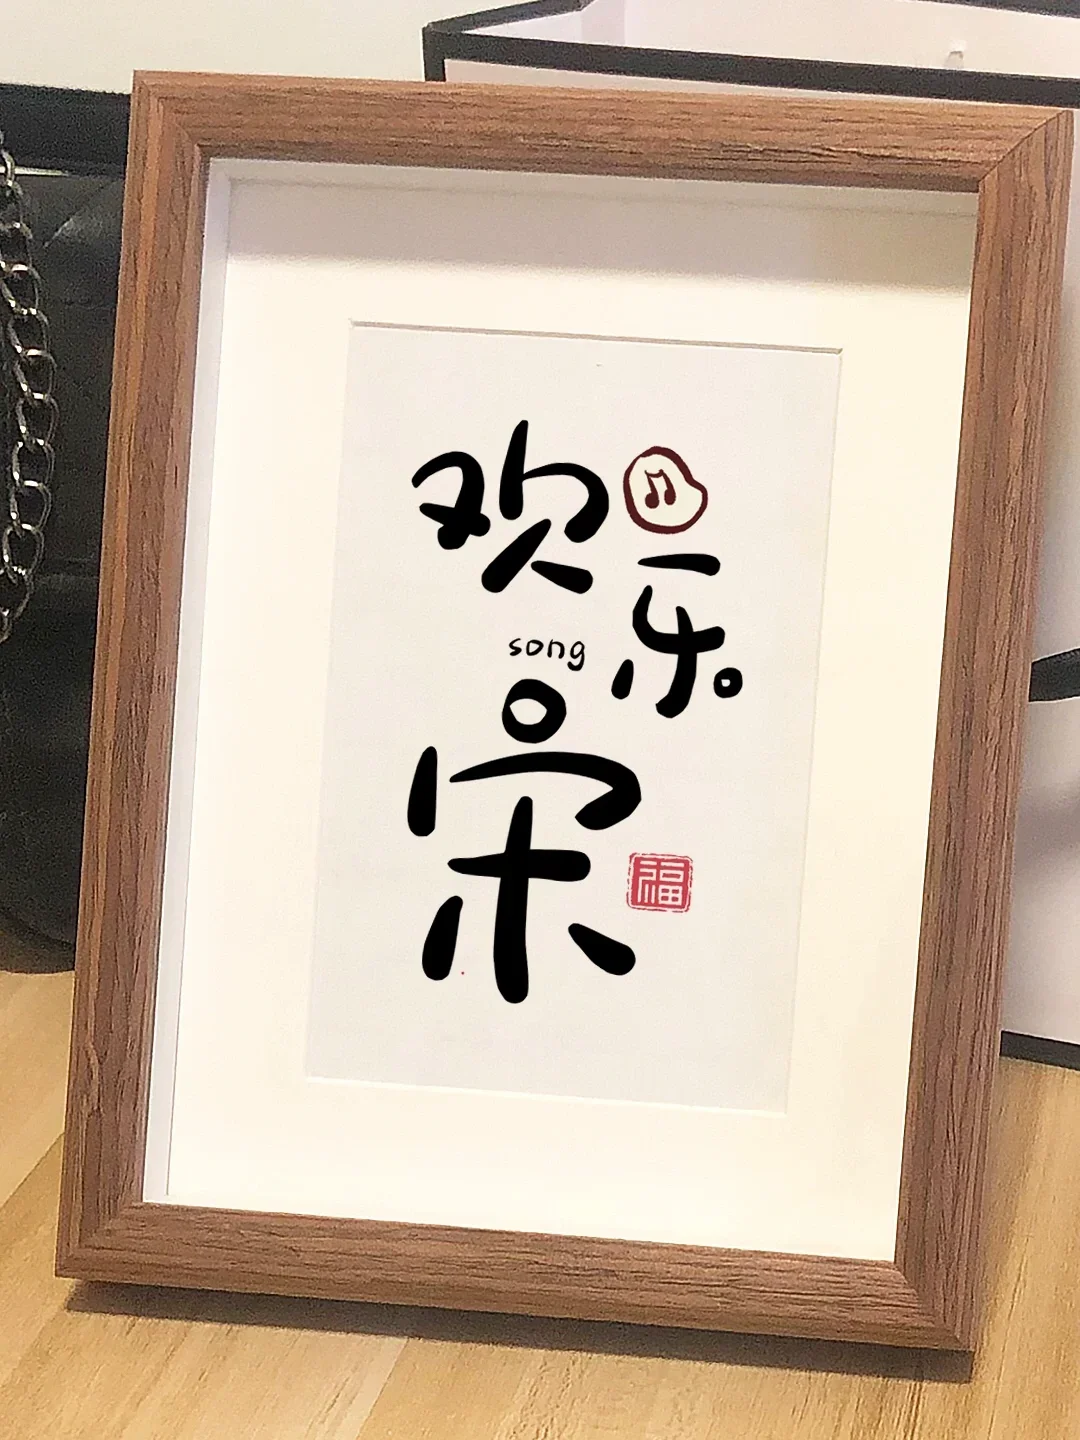 欢乐
song
宋
福